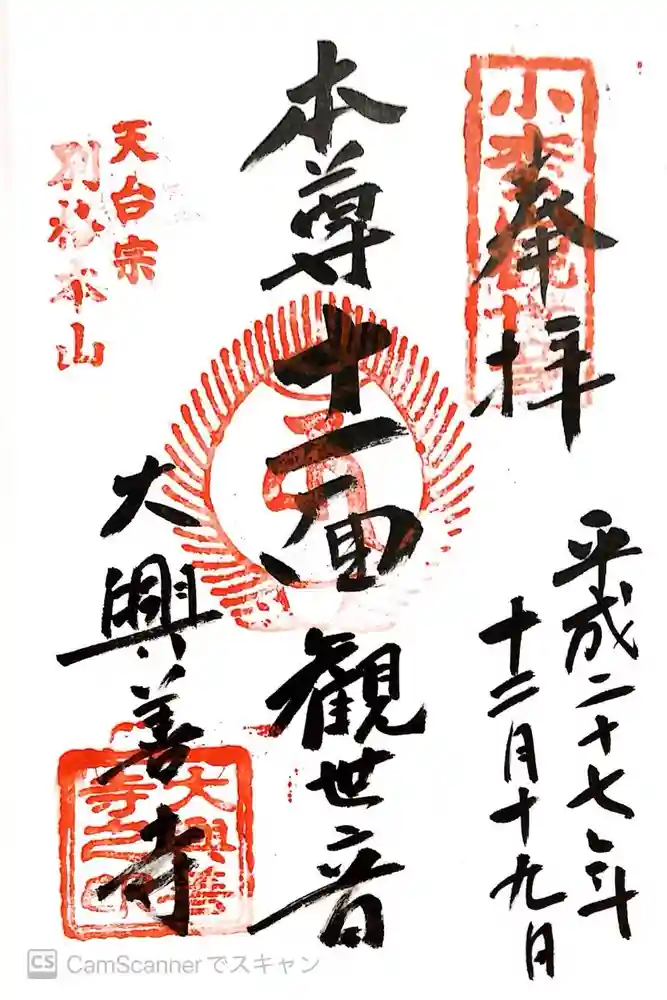 奉拝
平成二十七年
十二月十九日
本尊十一面観世音
大興善寺
天台宗
別格本山
小松観音
大興善寺之印
CS CamScannerでスキャン